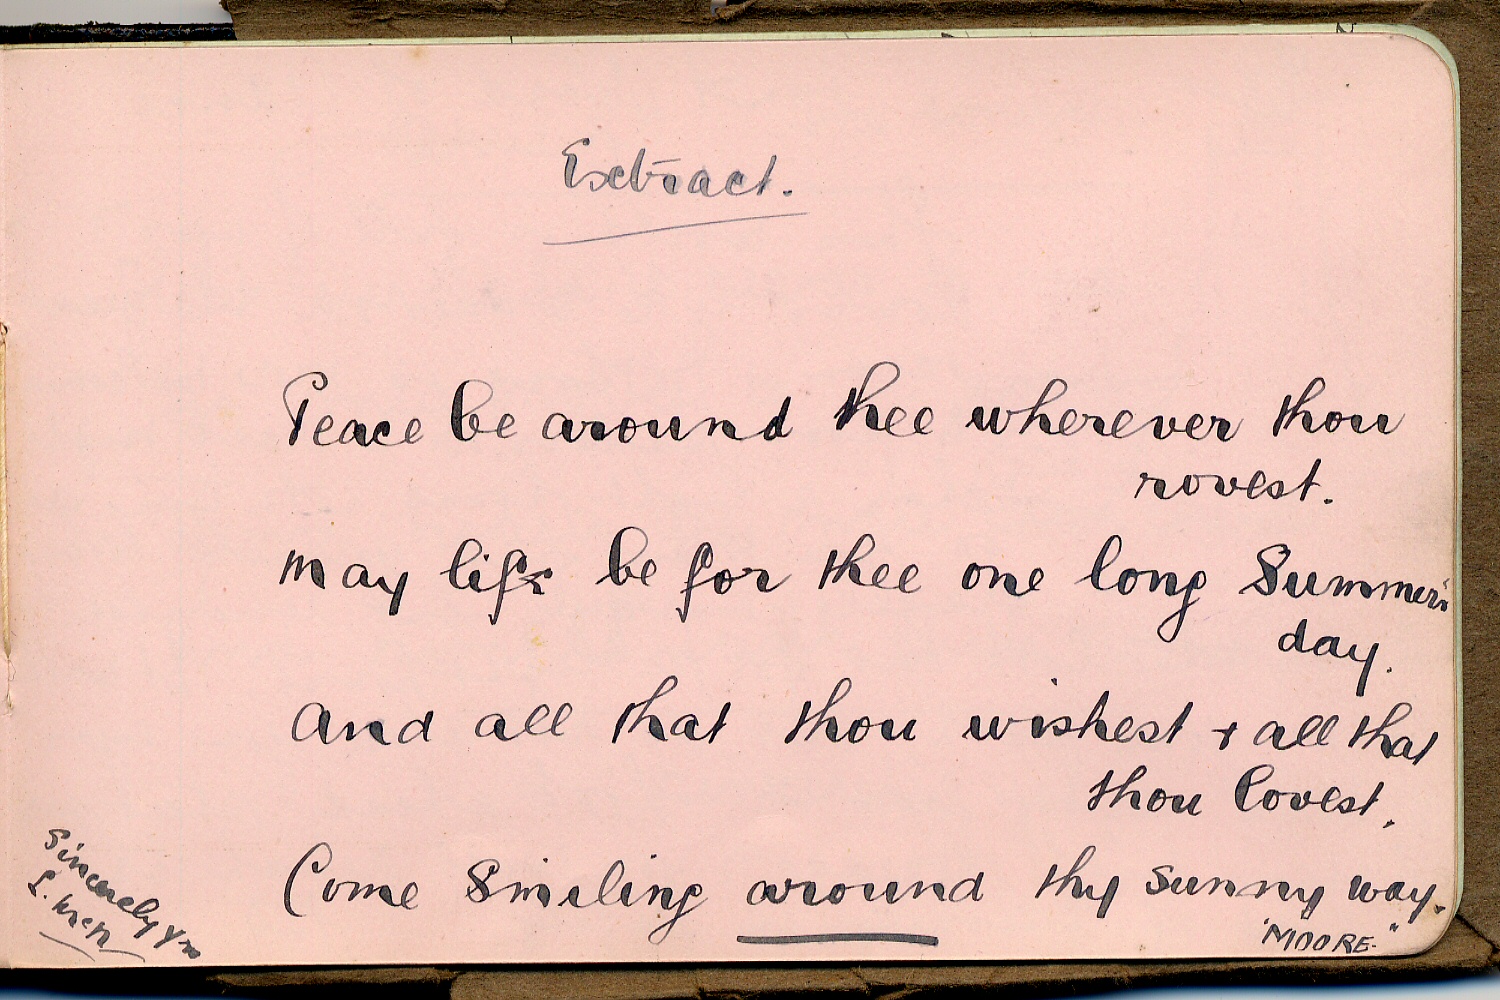 Extract.
Peace be around thee wherever thou
rovest.
May life be for thee one long Summer's
day.
And all that thou wishest + all that
thou lovest,
Come Smiling around thy sunny way.
"MOORE."
Sincerely Yrs
L. McN